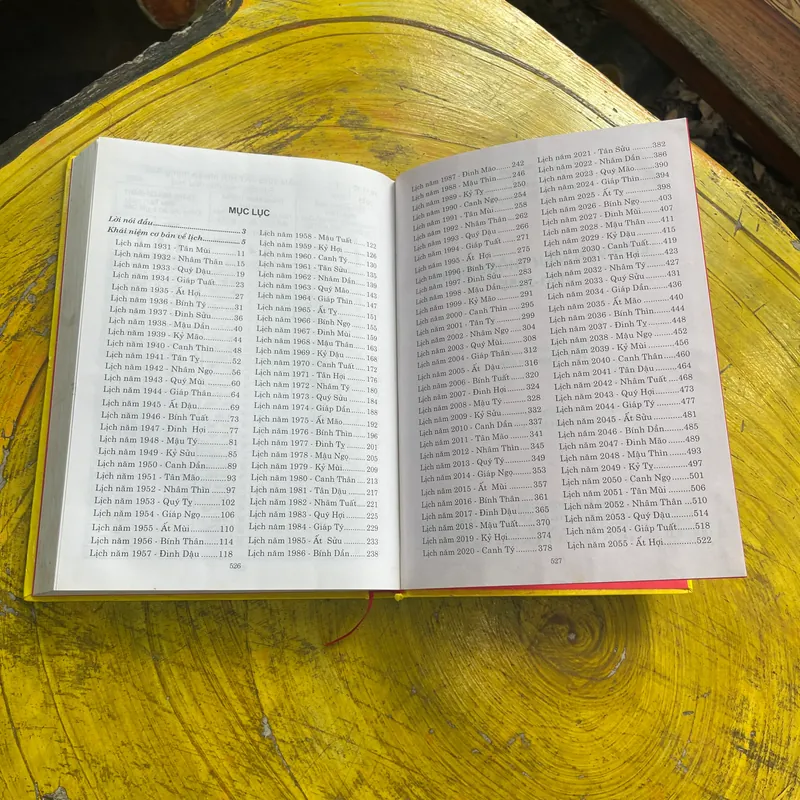 MỤC LỤC
Lời nói đầu...3
Khái niệm cơ bản về lịch...5
Lịch năm 1931 - Tân Mùi...11
Lịch năm 1932 - Nhâm Thân...15
Lịch năm 1933 - Quý Dậu...19
Lịch năm 1934 - Giáp Tuất...23
Lịch năm 1935 - Ất Hợi...27
Lịch năm 1936 - Bính Tý...31
Lịch năm 1937 - Đinh Sửu...36
Lịch năm 1938 - Mậu Dần...40
Lịch năm 1939 - Kỷ Mão...44
Lịch năm 1940 - Canh Thìn...48
Lịch năm 1941 - Tân Tỵ...52
Lịch năm 1942 - Nhâm Ngọ...56
Lịch năm 1943 - Quý Mùi...60
Lịch năm 1944 - Giáp Thân...64
Lịch năm 1945 - Ất Dậu...69
Lịch năm 1946 - Bính Tuất...73
Lịch năm 1947 - Đinh Hợi...77
Lịch năm 1948 - Mậu Tý...81
Lịch năm 1949 - Kỷ Sửu...85
Lịch năm 1950 - Canh Dần...89
Lịch năm 1951 - Tân Mão...93
Lịch năm 1952 - Nhâm Thìn...97
Lịch năm 1953 - Quý Tỵ...102
Lịch năm 1954 - Giáp Ngọ...106
Lịch năm 1955 - Ất Mùi...110
Lịch năm 1956 - Bính Thân...114
Lịch năm 1957 - Đinh Dậu...118
Lịch năm 1958 - Mậu Tuất...122
Lịch năm 1959 - Kỷ Hợi...126
Lịch năm 1960 - Canh Tý...130
Lịch năm 1961 - Tân Sửu...135
Lịch năm 1962 - Nhâm Dần...139
Lịch năm 1963 - Quý Mão...143
Lịch năm 1964 - Giáp Thìn...147
Lịch năm 1965 - Ất Tỵ...151
Lịch năm 1966 - Bính Ngọ...155
Lịch năm 1967 - Đinh Mùi...159
Lịch năm 1968 - Mậu Thân...163
Lịch năm 1969 - Kỷ Dậu...168
Lịch năm 1970 - Canh Tuất...172
Lịch năm 1971 - Tân Hợi...176
Lịch năm 1972 - Nhâm Tý...180
Lịch năm 1973 - Quý Sửu...184
Lịch năm 1974 - Giáp Dần...188
Lịch năm 1975 - Ất Mão...192
Lịch năm 1976 - Bính Thìn...195
Lịch năm 1977 - Đinh Tỵ...201
Lịch năm 1978 - Mậu Ngọ...205
Lịch năm 1979 - Kỷ Mùi...209
Lịch năm 1980 - Canh Thân...213
Lịch năm 1981 - Tân Dậu...217
Lịch năm 1982 - Nhâm Tuất...221
Lịch năm 1983 - Quý Hợi...225
Lịch năm 1984 - Giáp Tý...229
Lịch năm 1985 - Ất Sửu...233
Lịch năm 1986 - Bính Dần...238
526
Lịch năm 1987 - Đinh Mão...242
Lịch năm 1988 - Mậu Thìn...246
Lịch năm 1989 - Kỷ Tỵ...250
Lịch năm 1990 - Canh Ngọ...254
Lịch năm 1991 - Tân Mùi...258
Lịch năm 1992 - Nhâm Thân...262
Lịch năm 1993 - Quý Dậu...266
Lịch năm 1994 - Giáp Tuất...271
Lịch năm 1995 - Ất Hợi...275
Lịch năm 1996 - Bính Tý...279
Lịch năm 1997 - Đinh Sửu...283
Lịch năm 1998 - Mậu Dần...287
Lịch năm 1999 - Kỷ Mão...291
Lịch năm 2000 - Canh Thìn...295
Lịch năm 2001 - Tân Tỵ...299
Lịch năm 2002 - Nhâm Ngọ...304
Lịch năm 2003 - Quý Mùi...308
Lịch năm 2004 - Giáp Thân...312
Lịch năm 2005 - Ất Dậu...316
Lịch năm 2006 - Bính Tuất...320
Lịch năm 2007 - Đinh Hợi...324
Lịch năm 2008 - Mậu Tý...328
Lịch năm 2009 - Kỷ Sửu...332
Lịch năm 2010 - Canh Dần...337
Lịch năm 2011 - Tân Mão...341
Lịch năm 2012 - Nhâm Thìn...345
Lịch năm 2013 - Quý Tỵ...349
Lịch năm 2014 - Giáp Ngọ...353
Lịch năm 2015 - Ất Mùi...357
Lịch năm 2016 - Bính Thân...361
Lịch năm 2017 - Đinh Dậu...365
Lịch năm 2018 - Mậu Tuất...370
Lịch năm 2019 - Kỷ Hợi...374
Lịch năm 2020 - Canh Tý...378
Lịch năm 2021 - Tân Sửu...382
Lịch năm 2022 - Nhâm Dần...386
Lịch năm 2023 - Quý Mão...390
Lịch năm 2024 - Giáp Thìn...394
Lịch năm 2025 - Ất Tỵ...398
Lịch năm 2026 - Bính Ngọ...403
Lịch năm 2027 - Đinh Mùi...407
Lịch năm 2028 - Mậu Thân...411
Lịch năm 2029 - Kỷ Dậu...415
Lịch năm 2030 - Canh Tuất...419
Lịch năm 2031 - Tân Hợi...423
Lịch năm 2032 - Nhâm Tý...427
Lịch năm 2033 - Quý Sửu...431
Lịch năm 2034 - Giáp Dần...436
Lịch năm 2035 - Ất Mão...440
Lịch năm 2036 - Bính Thìn...444
Lịch năm 2037 - Đinh Tỵ...448
Lịch năm 2038 - Mậu Ngọ...452
Lịch năm 2039 - Kỷ Mùi...456
Lịch năm 2040 - Canh Thân...460
Lịch năm 2041 - Tân Dậu...464
Lịch năm 2042 - Nhâm Tuất...468
Lịch năm 2043 - Quý Hợi...473
Lịch năm 2044 - Giáp Tý...477
Lịch năm 2045 - Ất Sửu...481
Lịch năm 2046 - Bính Dần...485
Lịch năm 2047 - Đinh Mão...489
Lịch năm 2048 - Mậu Thìn...493
Lịch năm 2049 - Kỷ Tỵ...497
Lịch năm 2050 - Canh Ngọ...501
Lịch năm 2051 - Tân Mùi...506
Lịch năm 2052 - Nhâm Thân...510
Lịch năm 2053 - Quý Dậu...514
Lịch năm 2054 - Giáp Tuất...518
Lịch năm 2055 - Ất Hợi...522
527